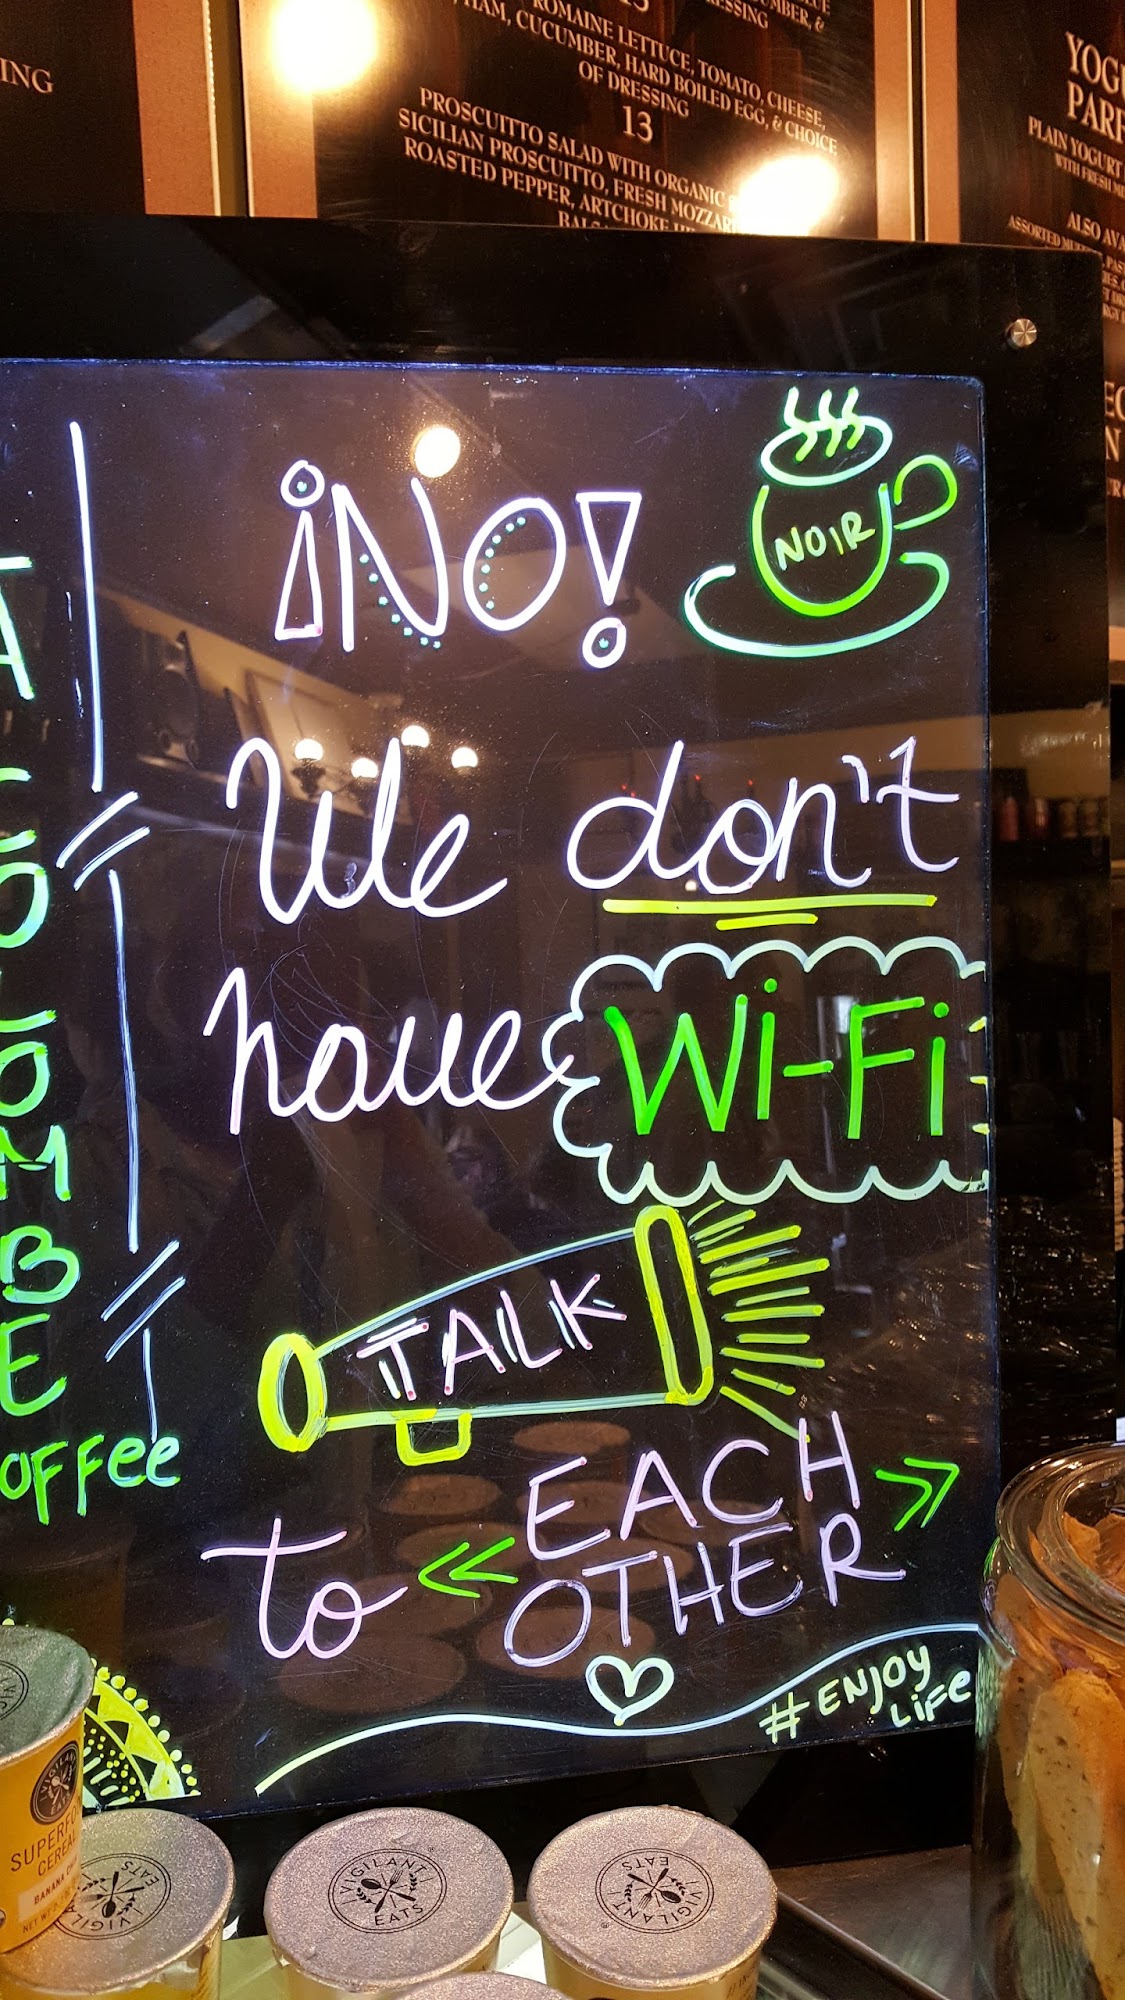 ING
ROMAINE LETTUCE, TOMATO, CHEESE,
HAM, CUCUMBER, HARD BOILED EGG, & CHOICE
OF DRESSING
13
PROSCUITTO SALAD WITH ORGANIC
SICILIAN PROSCUITTO, FRESH MOZZAR
ROASTED PEPPER, ARTCHOKE HE
YOGU
PARF
PLAIN YOGURT
WITH FRESH
ALSO AVA
ASSORTED
¡NO!
NOIR
We don't
have Wi-Fi
TALK
to << EACH >>
OTHER
#ENJOY
LiFe
OMBE
oFFee
VIGILANT
EATS
SUPERFO
CEREAL
BANANA
NET W
VIGILANT
EATS
VIGILANT
EATS
VIGILANT
EATS